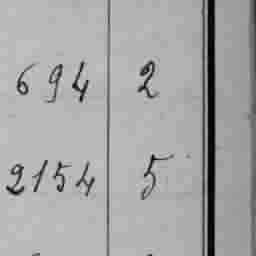 694 2
2154 5